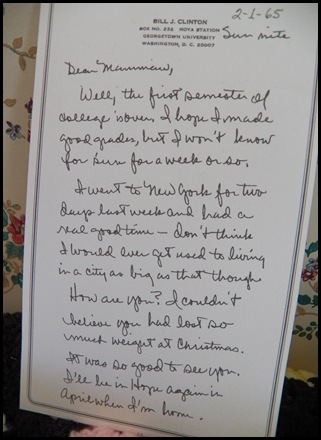 BILL J. CLINTON
BOX NO. 232 HOYA STATION
GEORGETOWN UNIVERSITY
WASHINGTON, D. C. 20007
2-1-65
Sun nite
Dear Mammaw,
Well, the first semester of
college is over. I hope I made
good grades, but I won't know
for sure for a week or so.
I went to New York for two
days last week and had a
real good time — don't think
I would ever get used to living
in a city as big as that though
How are you? I couldn't
believe you had lost so
much weight at Christmas.
It was so good to see you.
I'll be in Hope again in
April when I'm home.